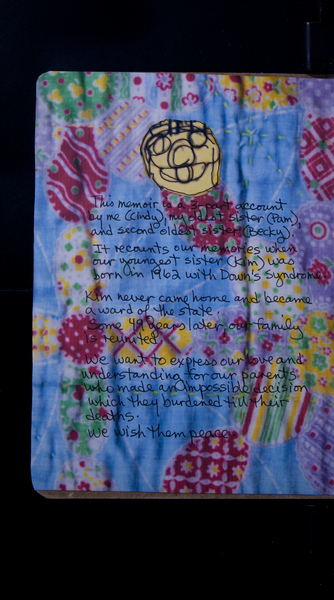 This memoir is a 3-part account
by me (Cindy), my oldest sister (Pam),
and second oldest sister (Becky).
It recounts our memories when
our youngest sister (Kim) was
born in 1962 with Down's Syndrome.
Kim never came home and became
a ward of the state.
Some 49 years later our family
is reunited.
We want to express our love and
understanding for our parents
who made an impossible decision
which they burdened till their
deaths.
We wish them peace.